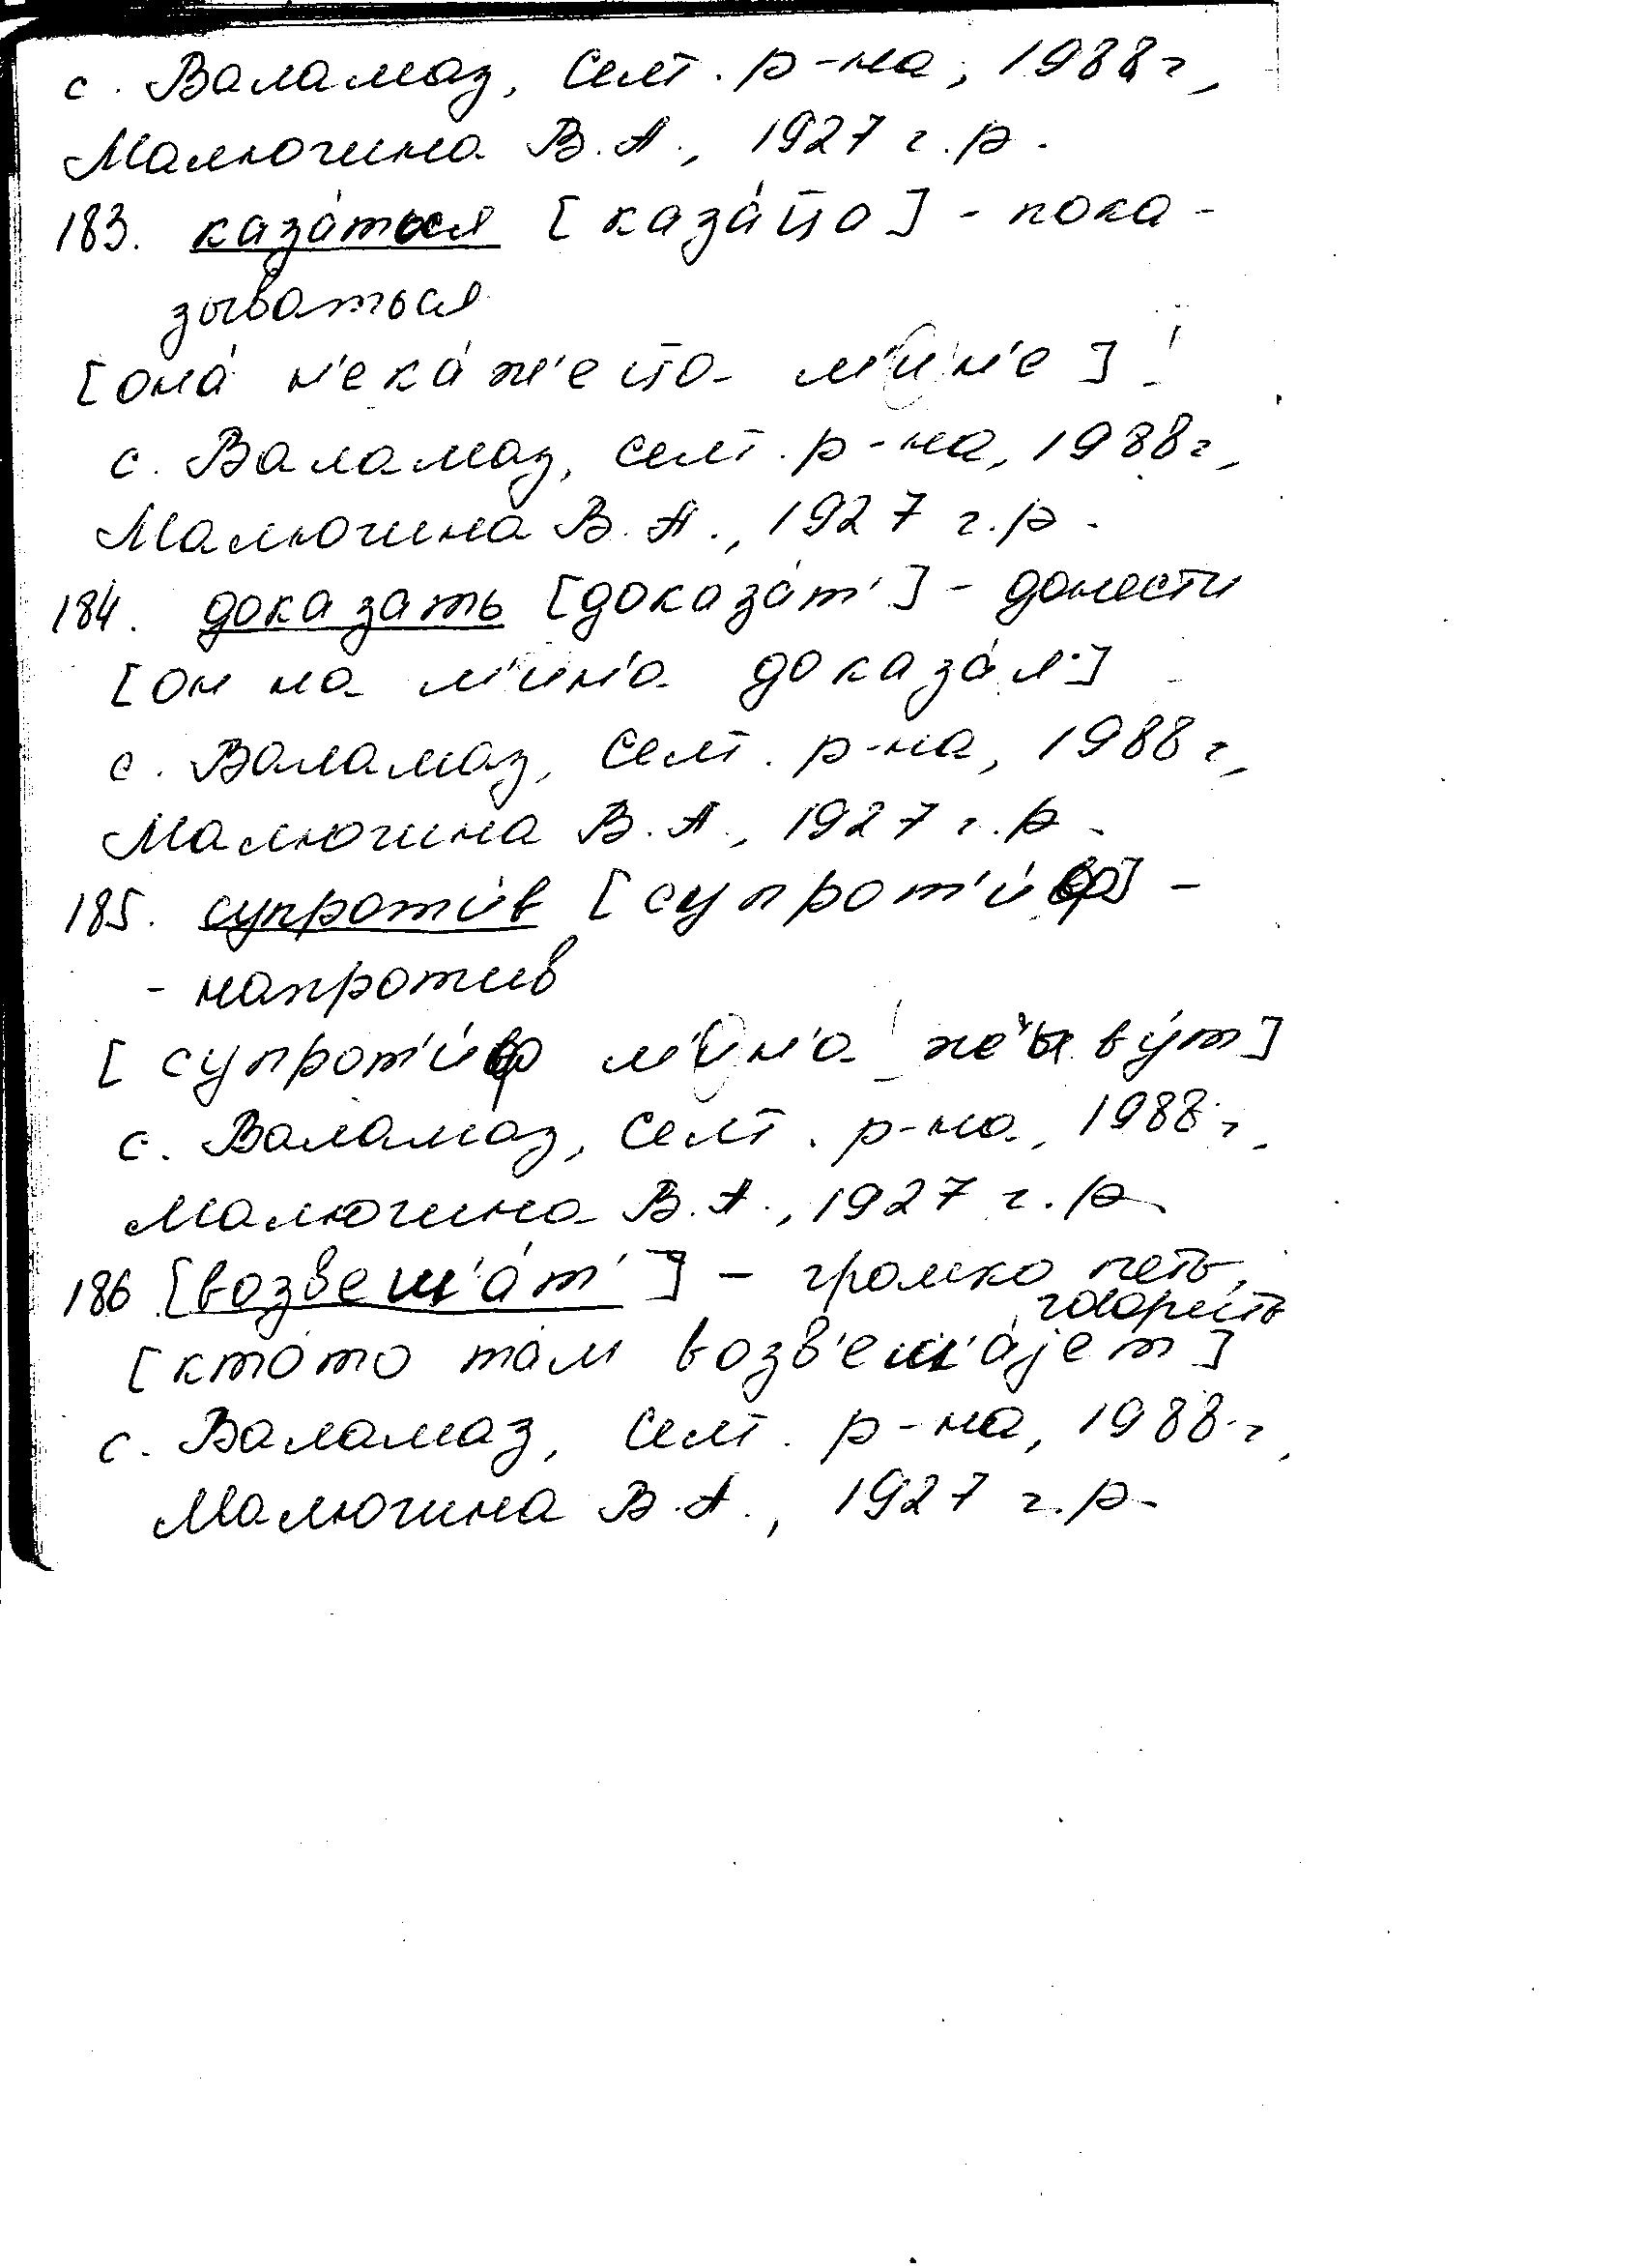 с. Валамаз, Селт. р-на, 1988 г,
Малюгина В.А., 1927 г.р.
183. каза́ться [каза́ц̅а] - пока-
зываться
[она́ н'ека́ж'ец̅а м'ин'е]
с. Валамаз, Селт. р-на, 1988 г,
Малюгина В.А., 1927 г.р.
184. доказать [доказа́т'] - донести
[он на м'ин'а доказа́л]
с. Валамаз, Селт. р-на, 1988 г,
Малюгина В.А., 1927 г.р.
185. супроти́в [супрот'и́ф] -
- напротив
[супрот'и́ф м'ин'а живу́т]
с. Валамаз, Селт. р-на, 1988 г,
Малюгина В.А., 1927 г.р.
186 [возвеш'а́т'] - громко петь,
говорить
[кто́то там возв'еш'а́јет]
с. Валамаз, Селт. р-на, 1988 г,
Малюгина В.А., 1927 г.р.